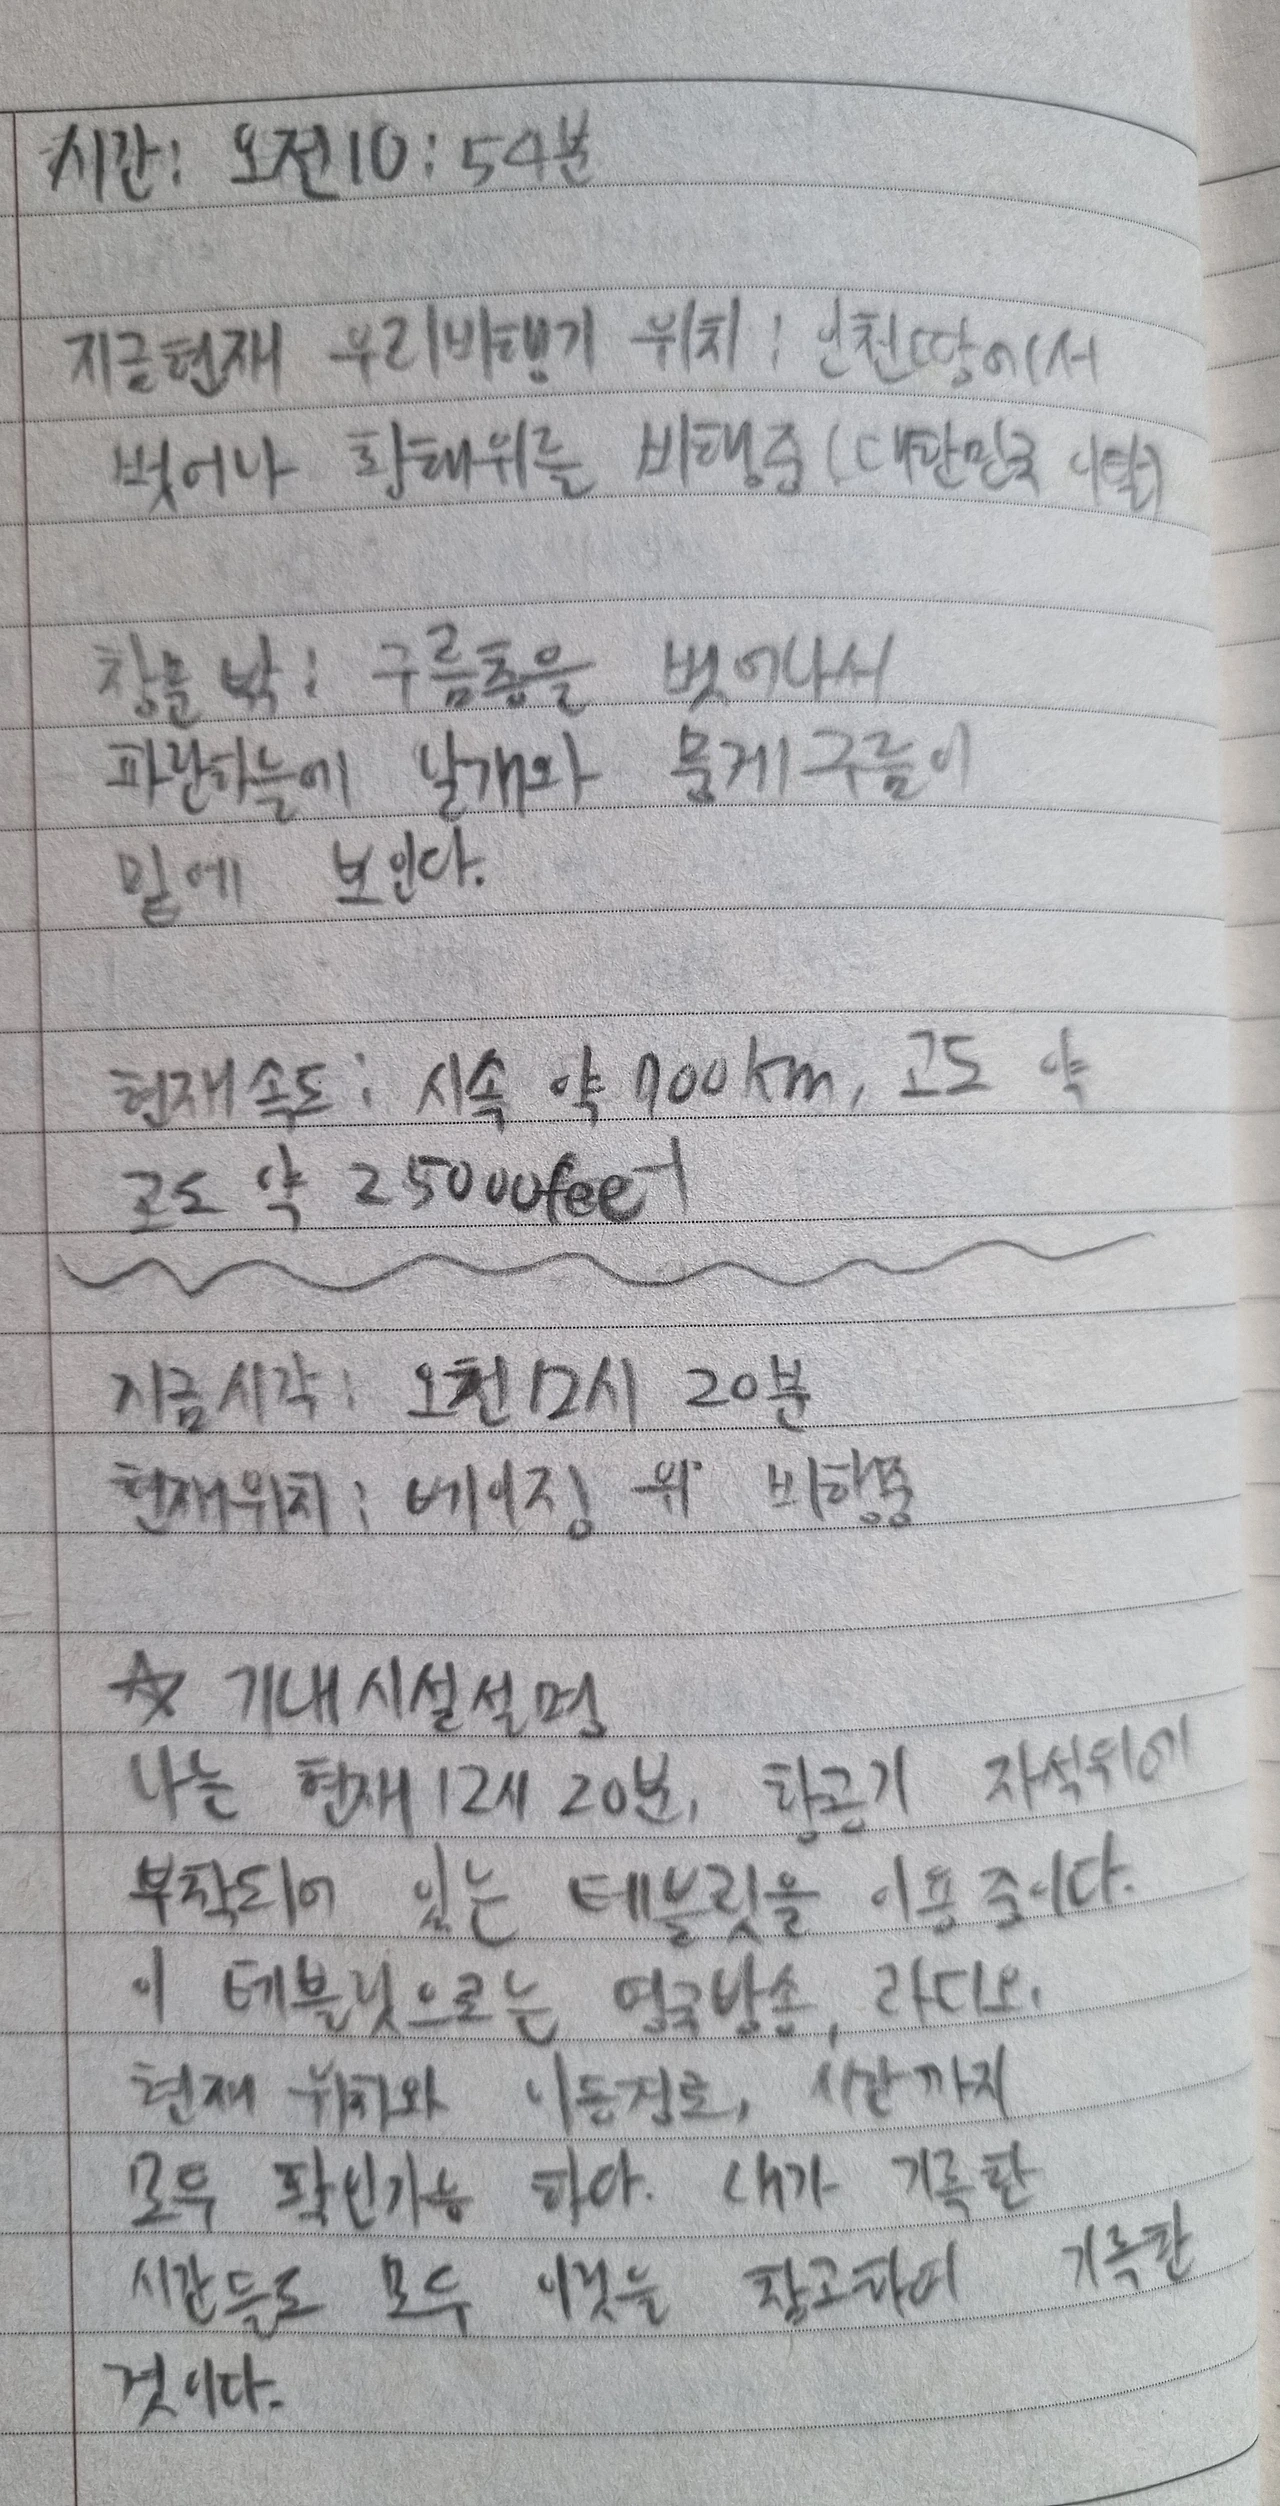 시간: 오전10:54분
지금현재 우리비행기 위치: 인천땅에서
벗어나 황해위를 비행중(대한민국 이탈)
창문 밖: 구름층을 벗어나서
파란하늘에 날개와 뭉게구름이
밑에 보인다.
현재속도: 시속 약 700km, 고도 약
고도 약 25000feet
지금시각: 오전12시 20분
현재위치: 베이징 위 비행중
☆ 기내시설설명
나는 현재12시 20분, 항공기 좌석뒤에
부착되어 있는 테블릿을 이용중이다.
이 테블릿으로는 영국방송, 라디오,
현재 위치와 이동경로, 시간까지
모두 확인가능 하다. 내가 기록한
시간들도 모두 이것을 참고하여 기록한
것이다.